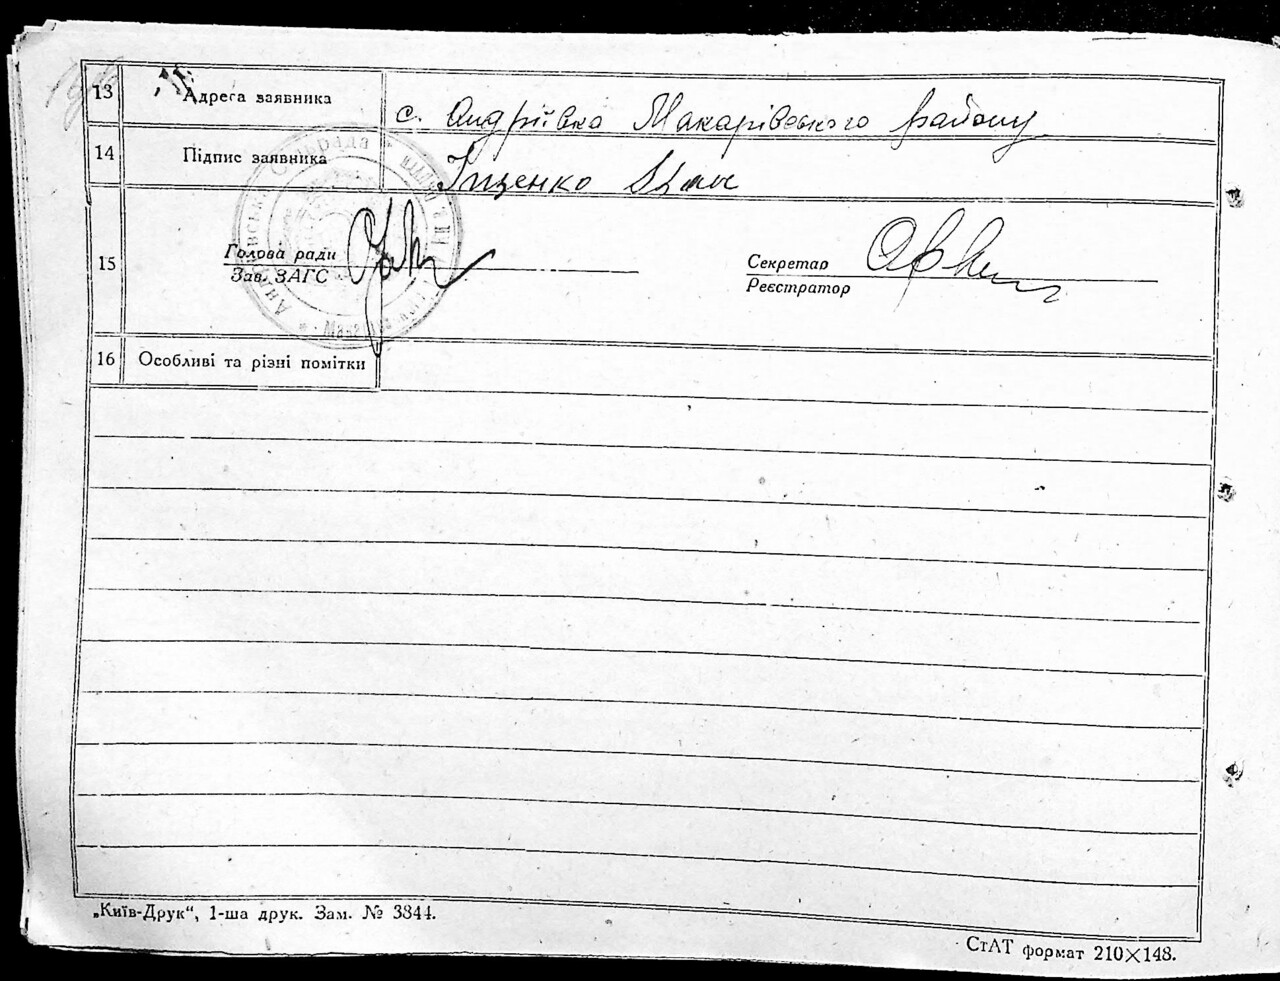 13 Адреса заявника с. Андріївка Макарівського району
14 Підпис заявника Іщенко
15 Голова ради
Зав. ЗАГС
Секретар
Реєстратор
16 Особливі та різні помітки
„Київ-Друк“, 1-ша друк. Зам. № 3844.
СтАТ формат 210×148.